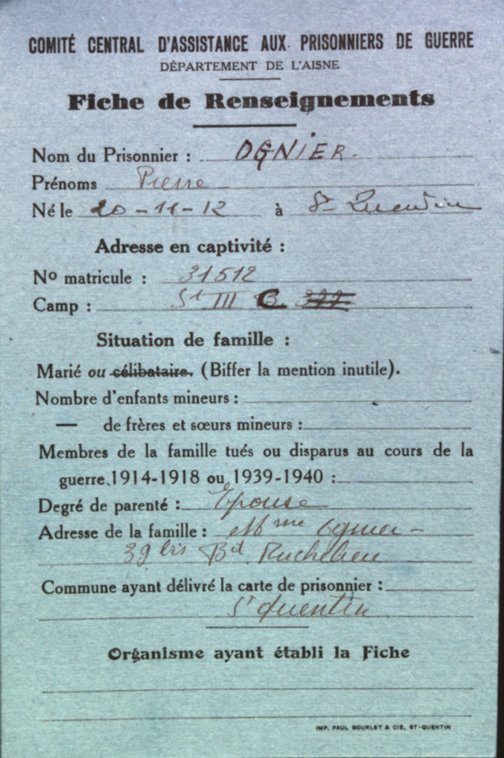 COMITÉ CENTRAL D'ASSISTANCE AUX PRISONNIERS DE GUERRE
DÉPARTEMENT DE L'AISNE
Fiche de Renseignements
Nom du Prisonnier : OGNIER
Prénoms Pierre
Né le 20-11-12 à St Quentin
Adresse en captivité :
No matricule : 31512
Camp : St III C
Situation de famille :
Marié ou célibataire. (Biffer la mention inutile).
Nombre d'enfants mineurs :
— de frères et sœurs mineurs :
Membres de la famille tués ou disparus au cours de la
guerre 1914-1918 ou 1939-1940 :
Degré de parenté : Epouse
Adresse de la famille : Mme Ognier -
39 bis Bd Richelieu
Commune ayant délivré la carte de prisonnier :
St Quentin
Organisme ayant établi la Fiche
IMP. PAUL BOURLET & CIE, ST-QUENTIN